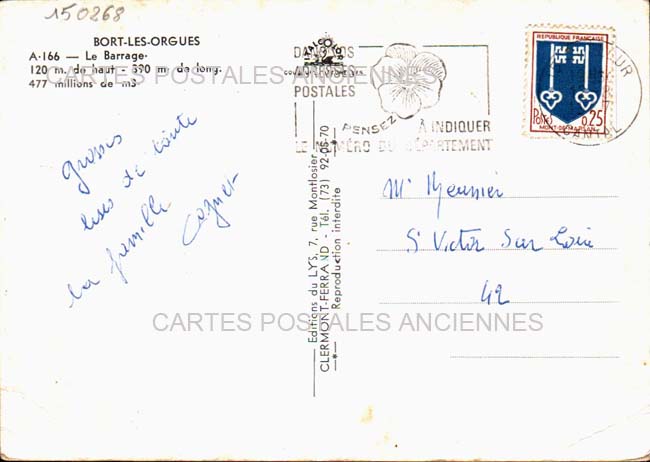 150268
BORT-LES-ORGUES
A-166 — Le Barrage
120 m. de haut - 390 m de long.
477 millions de m3
grosses
bises de toute
la famille
DANS VOS
POSTALES
PENSEZ
À INDIQUER
LE NUMÉRO DU DÉPARTEMENT
REPUBLIQUE FRANÇAISE
Postes 0,25
MONT-DE-MARSAN
CANTAL
Editions du LYS, 7, rue Montlosier
CLERMONT-FERRAND - Tél. (73) 92-06-70
Reproduction interdite
Mr Meunier
St Victor Sur Loire
42
CARTES POSTALES ANCIENNES
CARTES POSTALES ANCIENNES